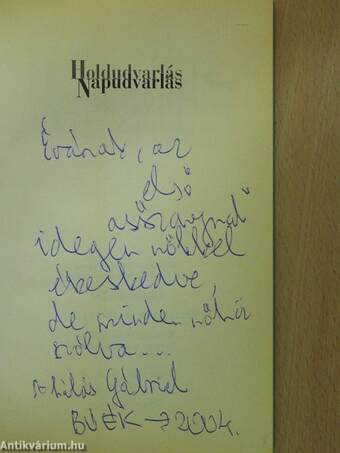 Holdudvarlás
Napudvarlás
Évának, az
"első
asszonynak"
idegen nőkkel
ékeskedve,
de minden nőhöz
szólva...
Gábriel
BUÉK → 2004.
Antikvárium.hu